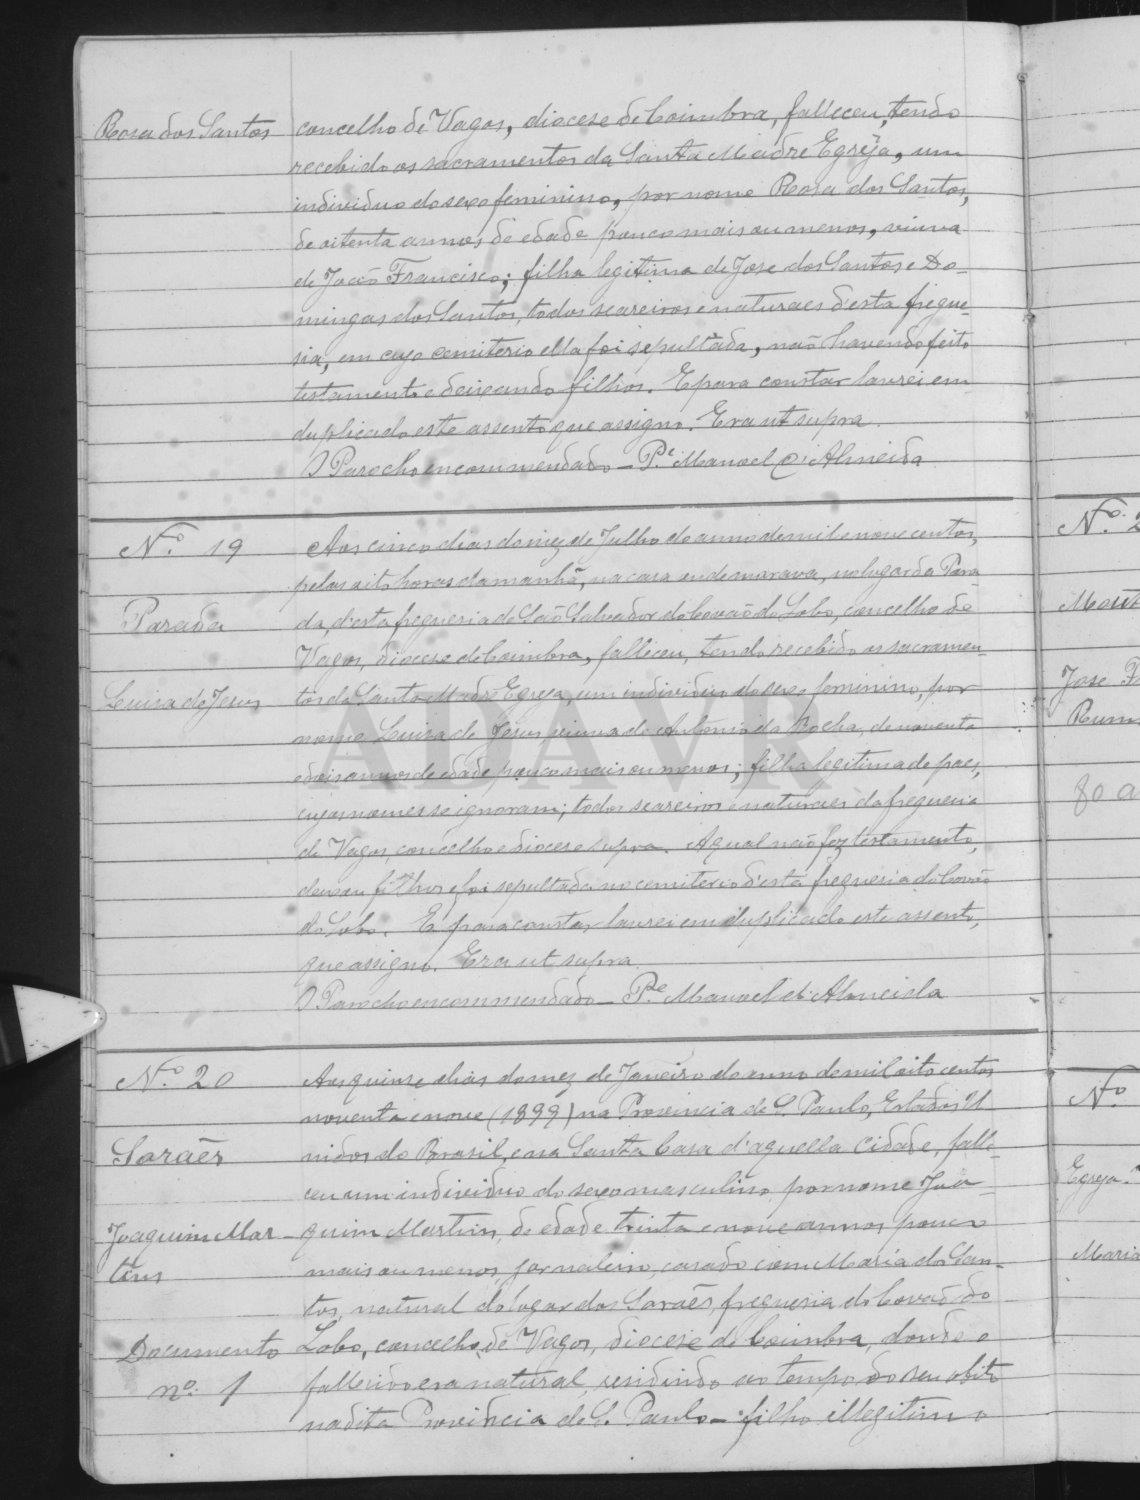 Rosa dos Santos
concelho de Vagos, diocese de Coimbra, falleceu, tendo
recebido os sacramentos da Santa Madre Egreja, um
individuo do sexo feminino, por nome Rosa dos Santos,
de oitenta annos de edade pouco mais ou menos, viuva
de João Francisco; filha legitima de Jose dos Santos e Do-
mingas dos Santos, todos seareiros e naturaes d'esta fregue-
sia, em cujo cemiterio ella foi sepultada, não havendo feito
testamento e deixando filhos. E para constar lavrei em
duplicado este assento que assigno. Era ut supra.
O Parocho encommendado — P.e Manoel d'Almeida
N.o 19
Parada
Luiza de Jesus
Aos cinco dias do mez de Julho do anno de mil e nove centos,
pelas oito horas da manhã, na casa onde morava, no lugar da Para-
da, d'esta freguesia de São Salvador do Covão do Lobo, concelho de
Vagos, diocese de Coimbra, falleceu, tendo recebido os sacramen-
tos da Santa Madre Egreja, um individuo do sexo feminino, por
nome Luiza de Jesus viuva de Antonio da Rocha, de noventa
e dois annos de edade pouco mais ou menos; filha legitima de paes,
cujos nomes se ignoram; todos seareiros e naturaes da freguesia
de Vagos, concelho e diocese supra. A qual não fez testamento,
deixou filhos e foi sepultada no cemiterio d'esta freguesia do Covão
do Lobo. E para constar lavrei em duplicado este assento,
que assigno. Era ut supra.
O Parocho encommendado — P.e Manoel d'Almeida
N.o 20
Saraẽs
Joaquim Mar-
tins
Documento
n.o 1
Aos quinze dias do mez de Janeiro do anno de mil oito centos
noventa e nove (1899) na Provincia de S. Paulo, Estados U-
nidos do Brasil, e na Santa Casa d'aquella cidade, falle-
ceu um individuo do sexo masculino, por nome Joa-
quim Martins, de edade trinta e nove annos pouco
mais ou menos, jornaleiro, casado com Maria dos San-
tos, natural do lugar dos Saraẽs, freguesia do Covão do
Lobo, concelho de Vagos, diocese de Coimbra, donde o
fallecido era natural, residindo ao tempo do seu obito
na dita Provincia de S. Paulo — filho illegitimo
N.o 2
Jose
80 a
N.o
Egreja
Maria
ADAVR